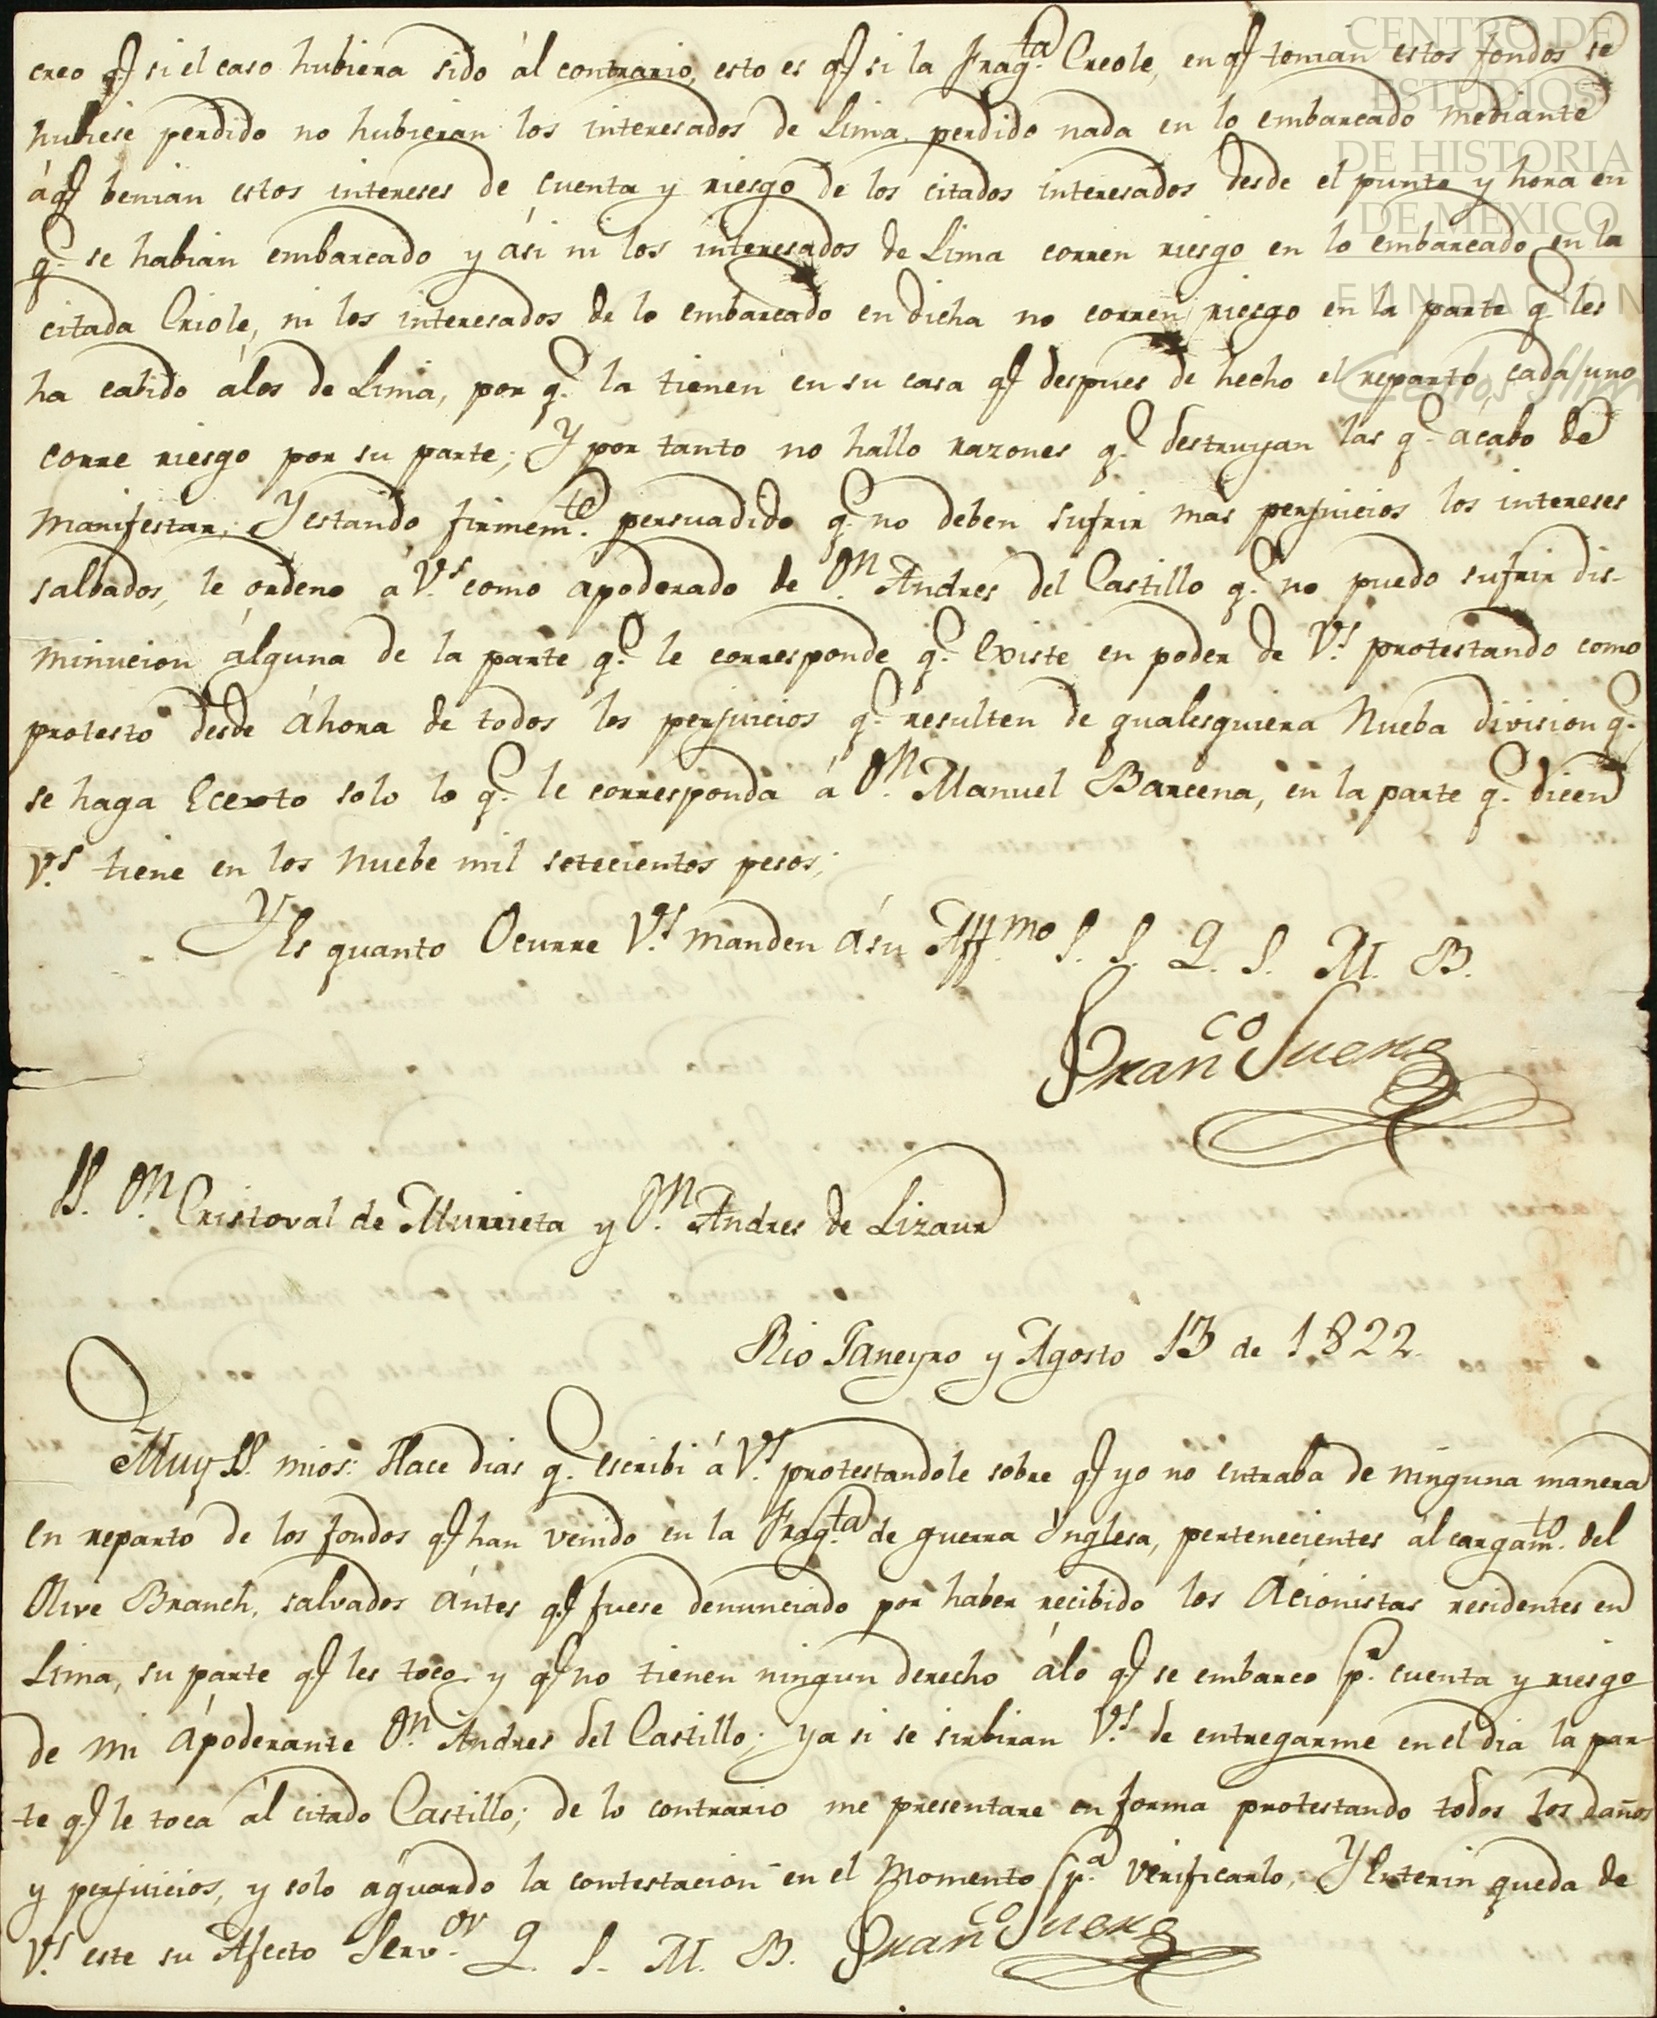 creo q.e si el caso hubiera sido ál contrario, esto es q.e si la Frag.ta Creole, en q.e tenian estos fondos se
hubiese perdido no hubieran los interesados de Lima perdido nada en lo embarcado mediante
áq.e benian estos intereses de cuenta y riesgo de los citados interesados desde el punto y hora en
q.e se habian embarcado y ási ni los interesados de Lima corren riesgo en lo embarcado en la
citada Criole, ni los interesados de lo embarcado en dicha no corren riesgo en la parte q.e les
ha cabido álos de Lima, por q.e la tienen en su casa q.e despues de hecho el reparto, cada uno
corre riesgo por su parte; Y por tanto no hallo razones q.e destruyan las q.e ácabo de
manifestar; Y estando firmem.te persuadido q.e no deben sufrir mas perjuicios los intereses
salbados, le ordeno á V.s como ápoderado de D.n Andres del Castillo q.e no puedo sufrir dis-
minucion álguna de la parte q.e le corresponde q.e Existe en poder de V.s protestando como
protesto desde áhora de todos los perjuicios q.e resulten de qualesquiera Nueba division q.e
se haga Ecexto solo lo q.e le corresponda á D.n Manuel Barcena, en la parte q.e dicen
V.s tiene en los nuebe mil setecientos pesos;
Y Es quanto Ocurre V.s manden ásu Aff.mo S. S. Q. S. M. B.
Fran.co Suero
SS. D.n Cristoval de Murrieta y D.n Andres de Lizaur
Rio Janeyro y Agosto 13 de 1822.
Muy SS. mios: Hace dias q.e escribi á V.s protestandole sobre q.e yo no entraba de ninguna manera
en reparto de los fondos q.e han venido en la Frag.ta de guerra Ynglesa, pertenecientes al cargam.to del
Olive Branch, salvados ántes q.e fuese denunciado por haber recibido los Acionistas residentes en
Lima, su parte q.e les toco y q.e no tienen ningun derecho álo q.e se embarco p.r cuenta y riesgo
de mi ápoderante D.n Andres del Castillo; ya si se sirbiran V.s de entregarme en el dia la par-
te q.e le toca ál citado Castillo; de lo contrario me presentare en forma protestando todos los daños
y perjuicios, y solo águardo la contestacion en el Momento p.a verificarlo; Y Enterin queda de
V.s este su Afecto Serv.or Q. S. M. B. Fran.co Suero
CENTRO DE
ESTUDIOS
DE HISTORIA
DE MEXICO
FUNDACION
Carlos Slim